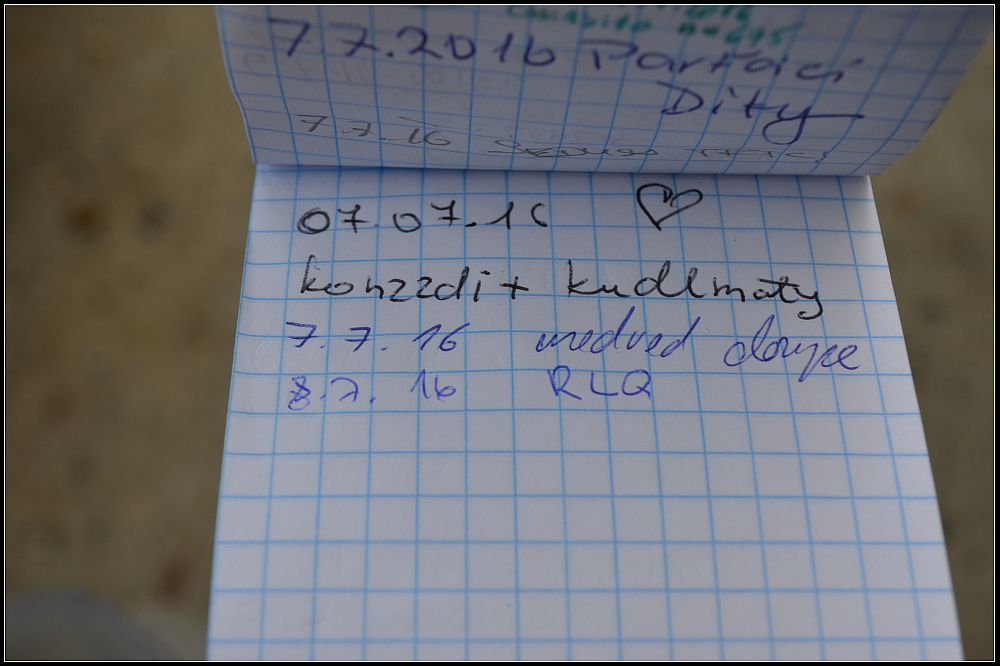 7 7.2016 Parťáci
Dity
7.7.16
07.07.16
konzzdi + kudlmaty
7.7.16 medved doupe
8.7.16 RLQ